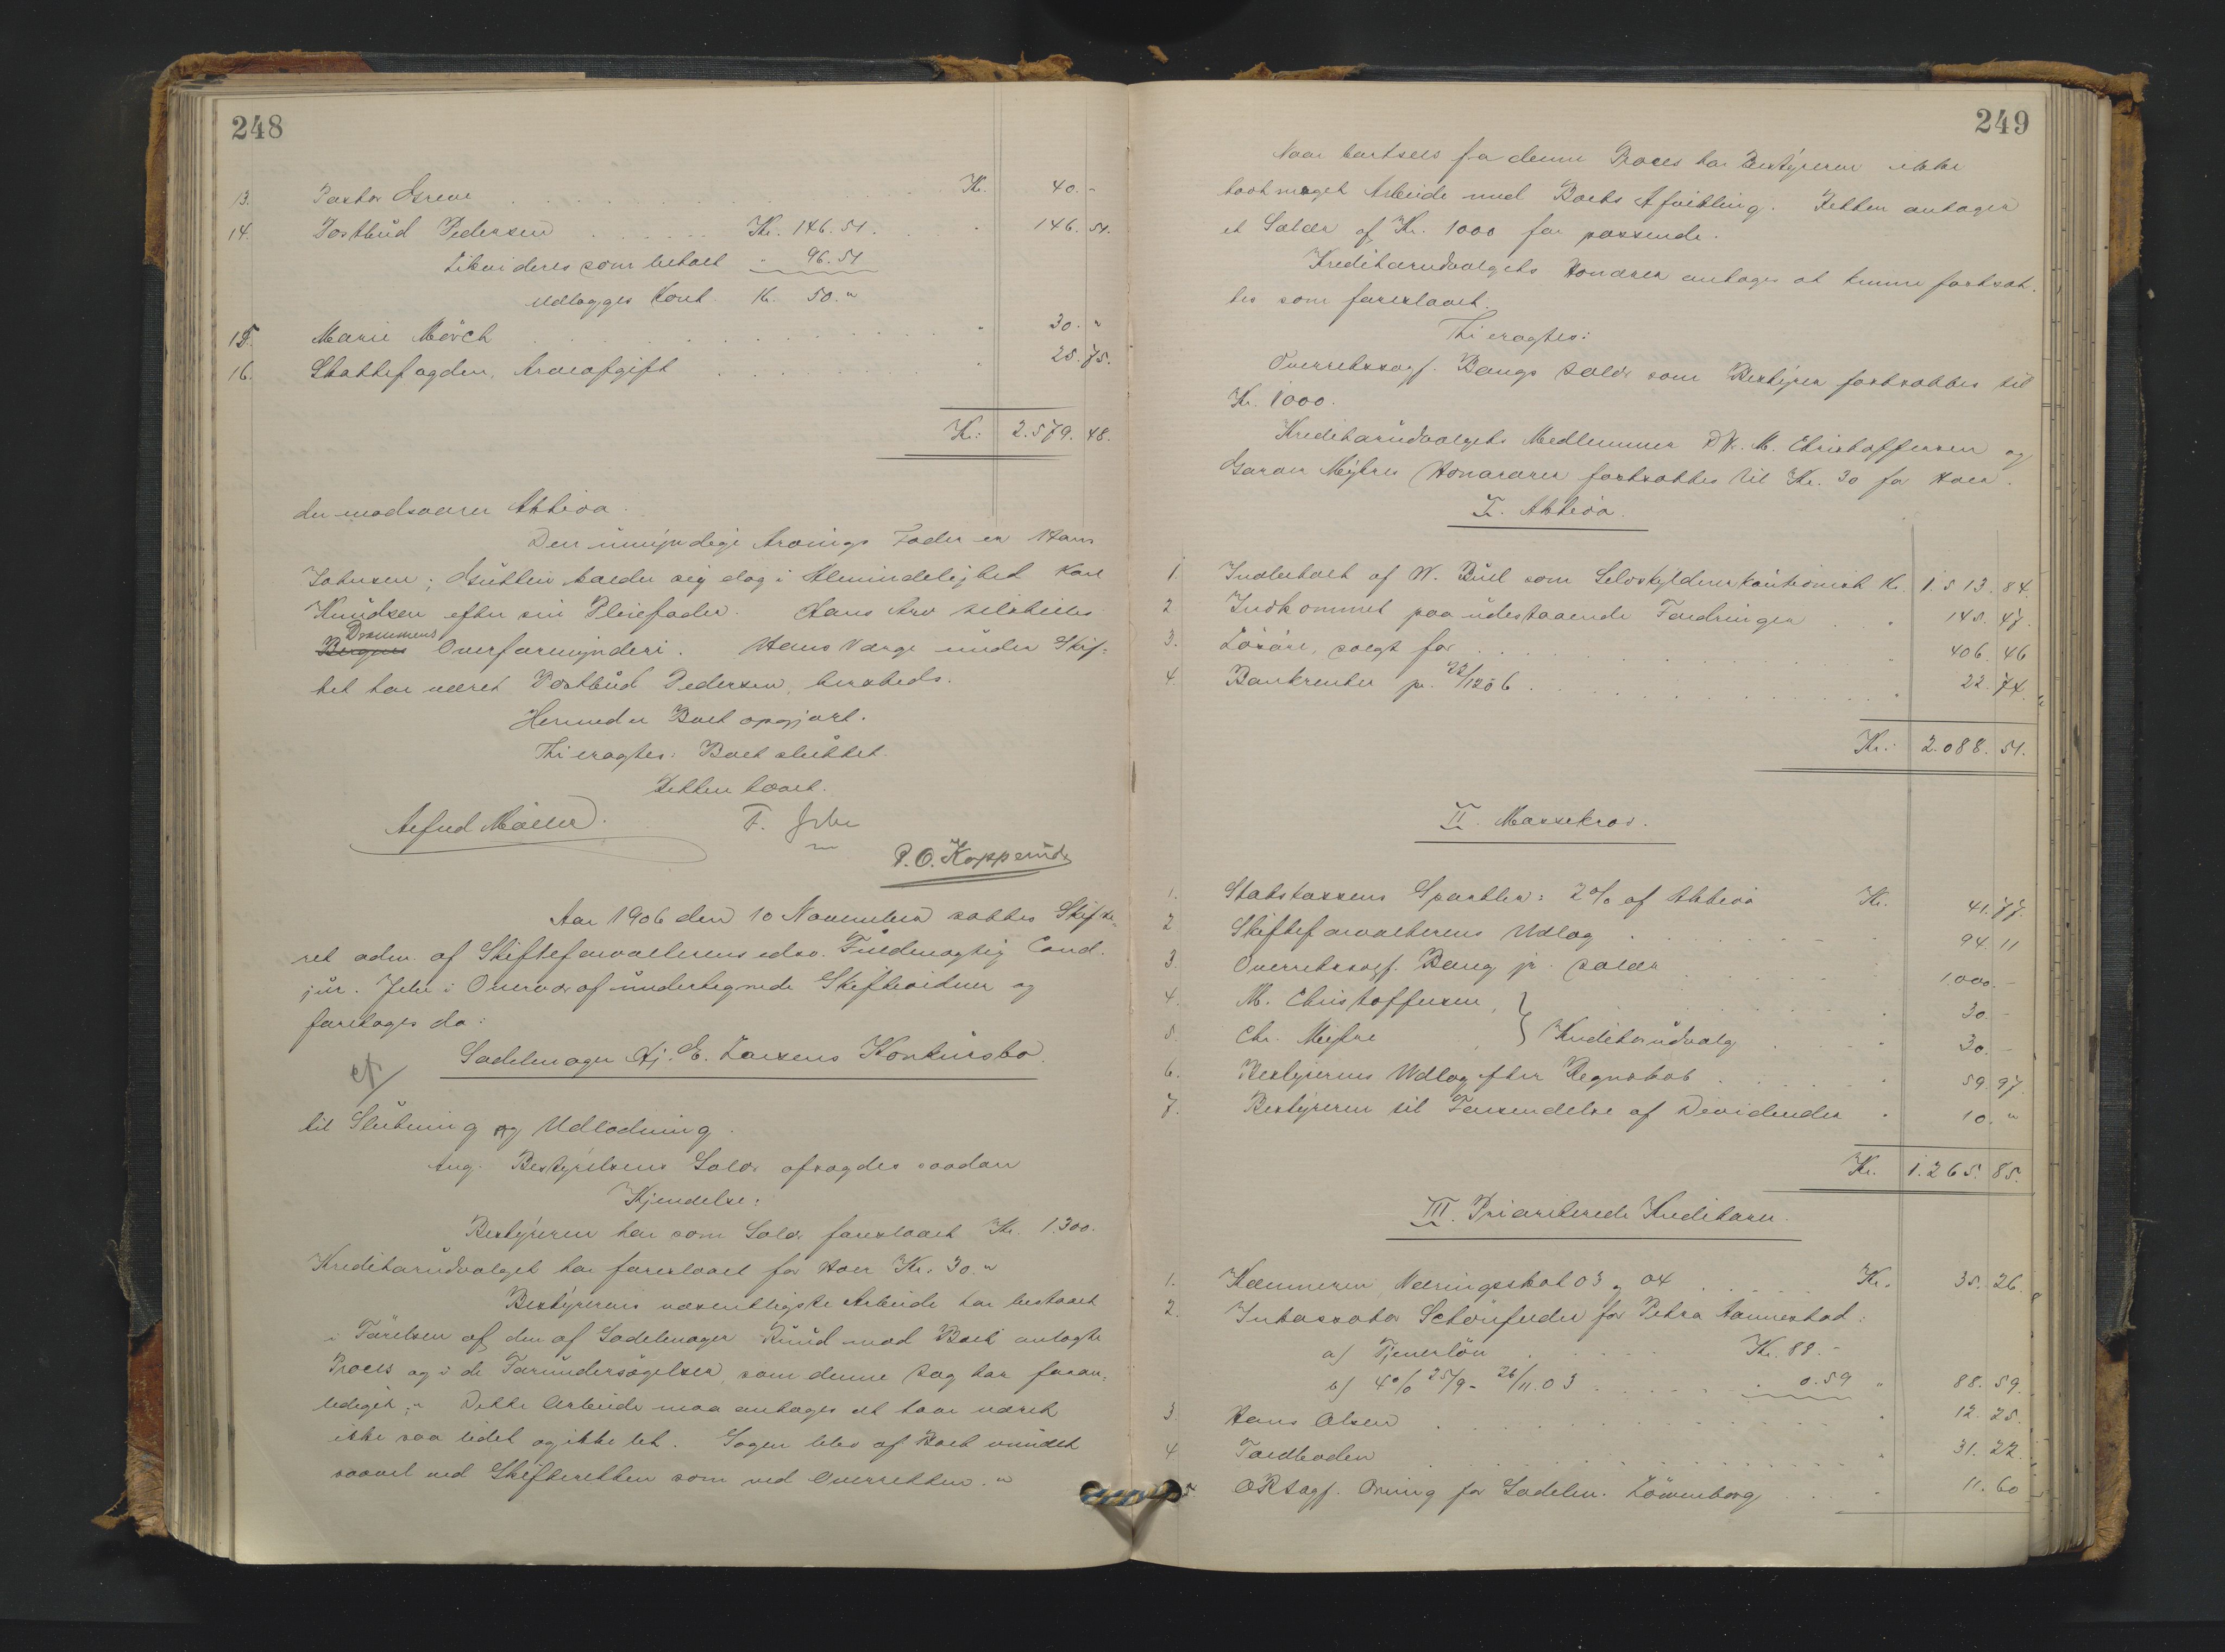 248
13. Pastor Greve Kr. 40.-
14. Postbud Pedersen Kr. 146.51. " 146.51.
Likvideres som betalt " 96.51
Udlægges Kont. Kr. 50."
15. Marie Mörch " 30."
16. Skattefogden, Arveafgift " 25.75.
Kr: 2.579.48.
der modsvarer Aktiva.
Den umyndige Arvings Fader er Hans
Johnsen; Gutten kalder sig dog i Almindelighed Karl
Knudsen efter sin Pleiefader. Hans Arv tilstilles
Drammens
Bergens Overformynderi. Hans Værge under Skif-
tet har været Postbud Pedersen, hersteds.
Hermed er Boet opgjort.
Thi eragtes: Boet sluttet.
Retten hævet.
Alfred Möller. F. Jebe
P.O. Kopperud
Aar 1906 den 10 November sattes Skifte-
ret adm. af Skifteforvalterens edsv. Fuldmægtig Cand.
jur. Jebe i Overvær af undertegnede Skiftevidner og
foretoges da:
Sadelmager Hj. E. Larsens Konkursbo.
til Slutning og Udlodning.
Ang. Bestyrelsens Salær afsagdes saadan
Kjendelse:
Bestyreren har som Salær foreslaaet Kr. 1.300.
Kreditorudvalget har foreslaaet for Hver Kr. 30."
Bestyrerens væsentligste Arbeide har bestaaet
i Førelsen af den af Sadelmager Ruud mod Boet anlagte
Proces og i de Forundersøgelser, som denne Sag har foran-
lediget;" Dette Arbeide maa antages at have været
ikke saa lidet og ikke let. Sagen blev af Boet vundet
saavel ved Skifteretten som ved Overretten."
249
Naar bortsees fra denne Proces har Bestyreren ikke
havt meget Arbeide med Boets Afvikling. Retten antager
et Salær af Kr. 1000 for passende.
Kreditorudvalgets Honorar antages at kunne fastsæt-
tes som foreslaaet.
Thi eragtes:
Overretssagf. Bangs Salær som Bestyrer fastsættes til
Kr. 1000.
Kreditorudvalgets Medlemmer M. Christoffersen og
Garver Myhres Honorarer fastsættes til Kr. 30 for Hver.
I. Aktiva.
1. Indbetalt af W. Buil som Selvskyldnerkautionist Kr. 1.513.84.
2 Indkommet paa udestaaende Fordringer " 145.47.
3. Løsøre, solgt for " 406.46
4. Bankrenter pr. 22/12 06 " 22.74.
Kr.: 2.088.51.
II. Massekrav.
1. Statskassens Sportler: 2% af Aktiva Kr. 41.77.
2 Skifteforvalterens Udlæg 94.11
3. Overretssagf. Bang jr. Salær 1.000.-
4. M. Christoffersen, } 30.-
5. Chr. Myhre } Kreditorudvalg 30.-
6. Bestyrerens Udlæg efter Regnskab 59.97
7. Bestyreren til Forsendelse af Dividender " 10."
Kr. 1.265.85.
III. Prioriterede Kreditorer.
1. Kæmneren, Næringsskat 03 og 04 Kr. 35.26.
2. Inkassator Schönfelder for Petra Aannestad:
a) Tjenerløn Kr. 88.-
b) 4% 25/9 - 26/11.03 " 0.59 " 88.59.
3 Hans Olsen " 12.25.
4 Toldboden " 31.22.
5. ORSagf. Orning for Sadelm. Löwenborg " 11.60